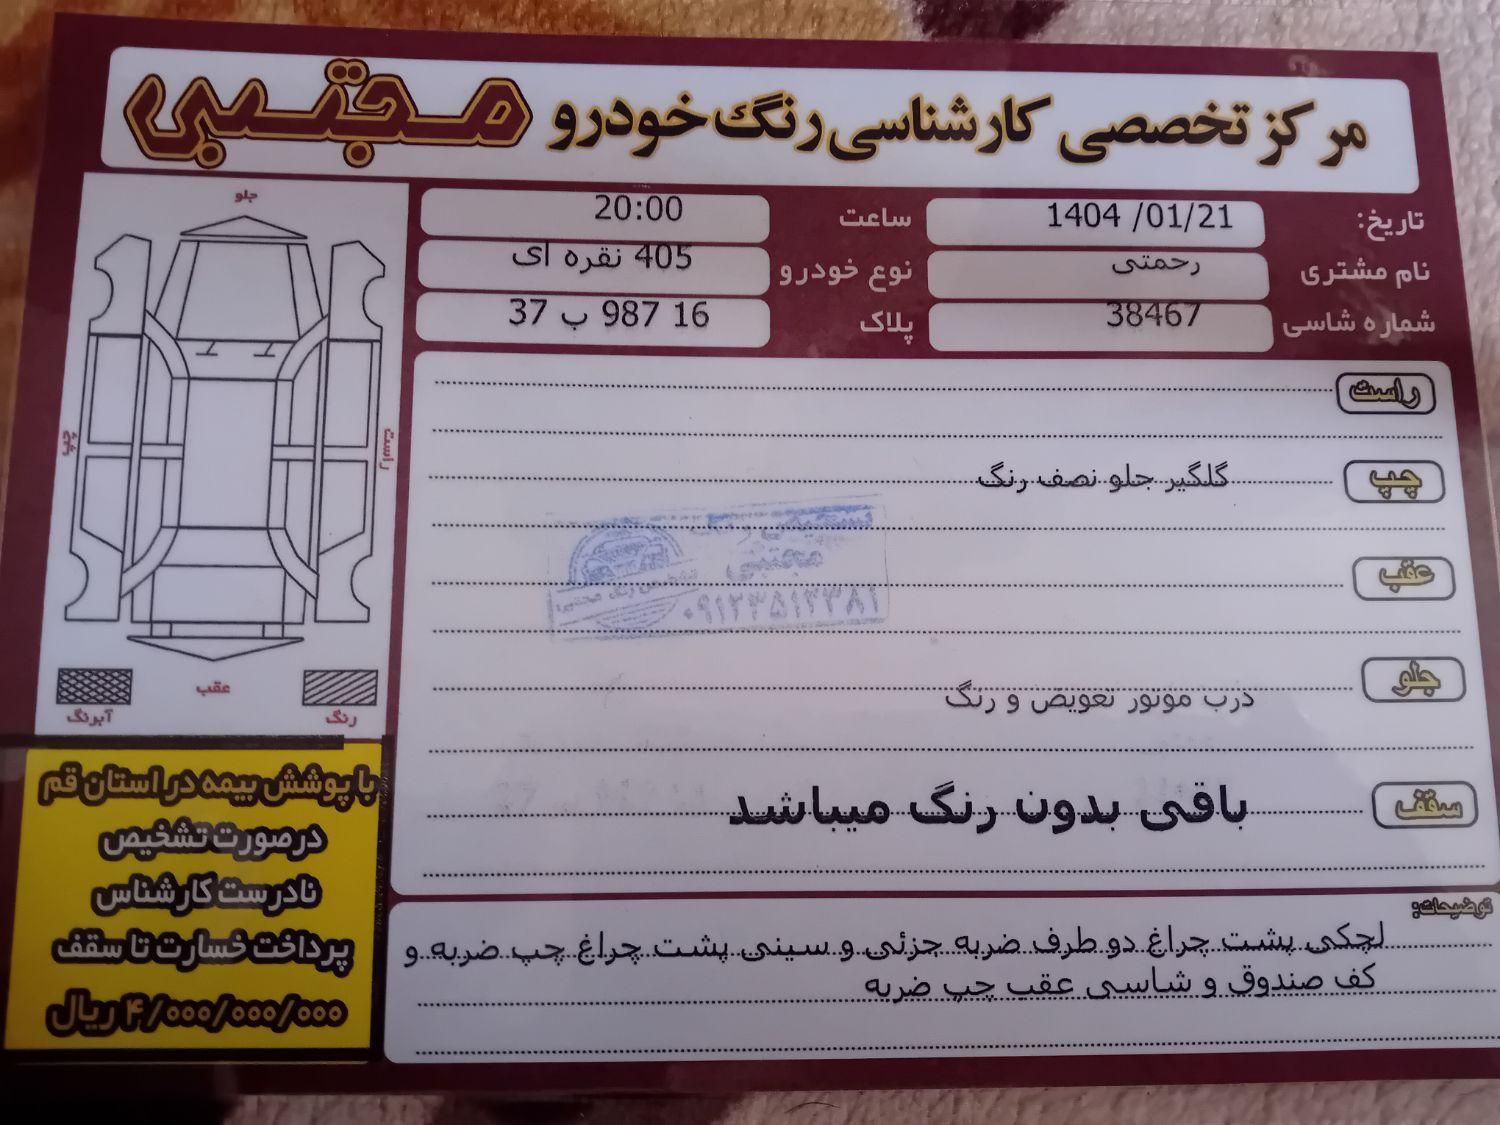 مرکز تخصصی کارشناسی رنگ خودرو مجتبی
تاریخ: 1404 /01/21
ساعت 20:00
نام مشتری رحمتی
نوع خودرو 405 نقره ای
شماره شاسی 38467
پلاک 16 987 ب 37
جلو
چپ
راست
عقب
رنگ
آبرنگ
راست
چپ گلگیر جلو نصف رنگ
عقب
جلو درب موتور تعویض و رنگ
سقف باقی بدون رنگ میباشد
تشخیص رنگ
مجتبی
تشخیص رنگ مجتبی
۰۹۱۲۳۵۱۲۳۸۱
توضیحات:
لچکی پشت چراغ دو طرف ضربه جزئی و سینی پشت چراغ چپ ضربه و
کف صندوق و شاسی عقب چپ ضربه
با پوشش بیمه در استان قم
درصورت تشخیص
نادرست کارشناس
پرداخت خسارت تا سقف
۴/۰۰۰/۰۰۰/۰۰۰ ریال